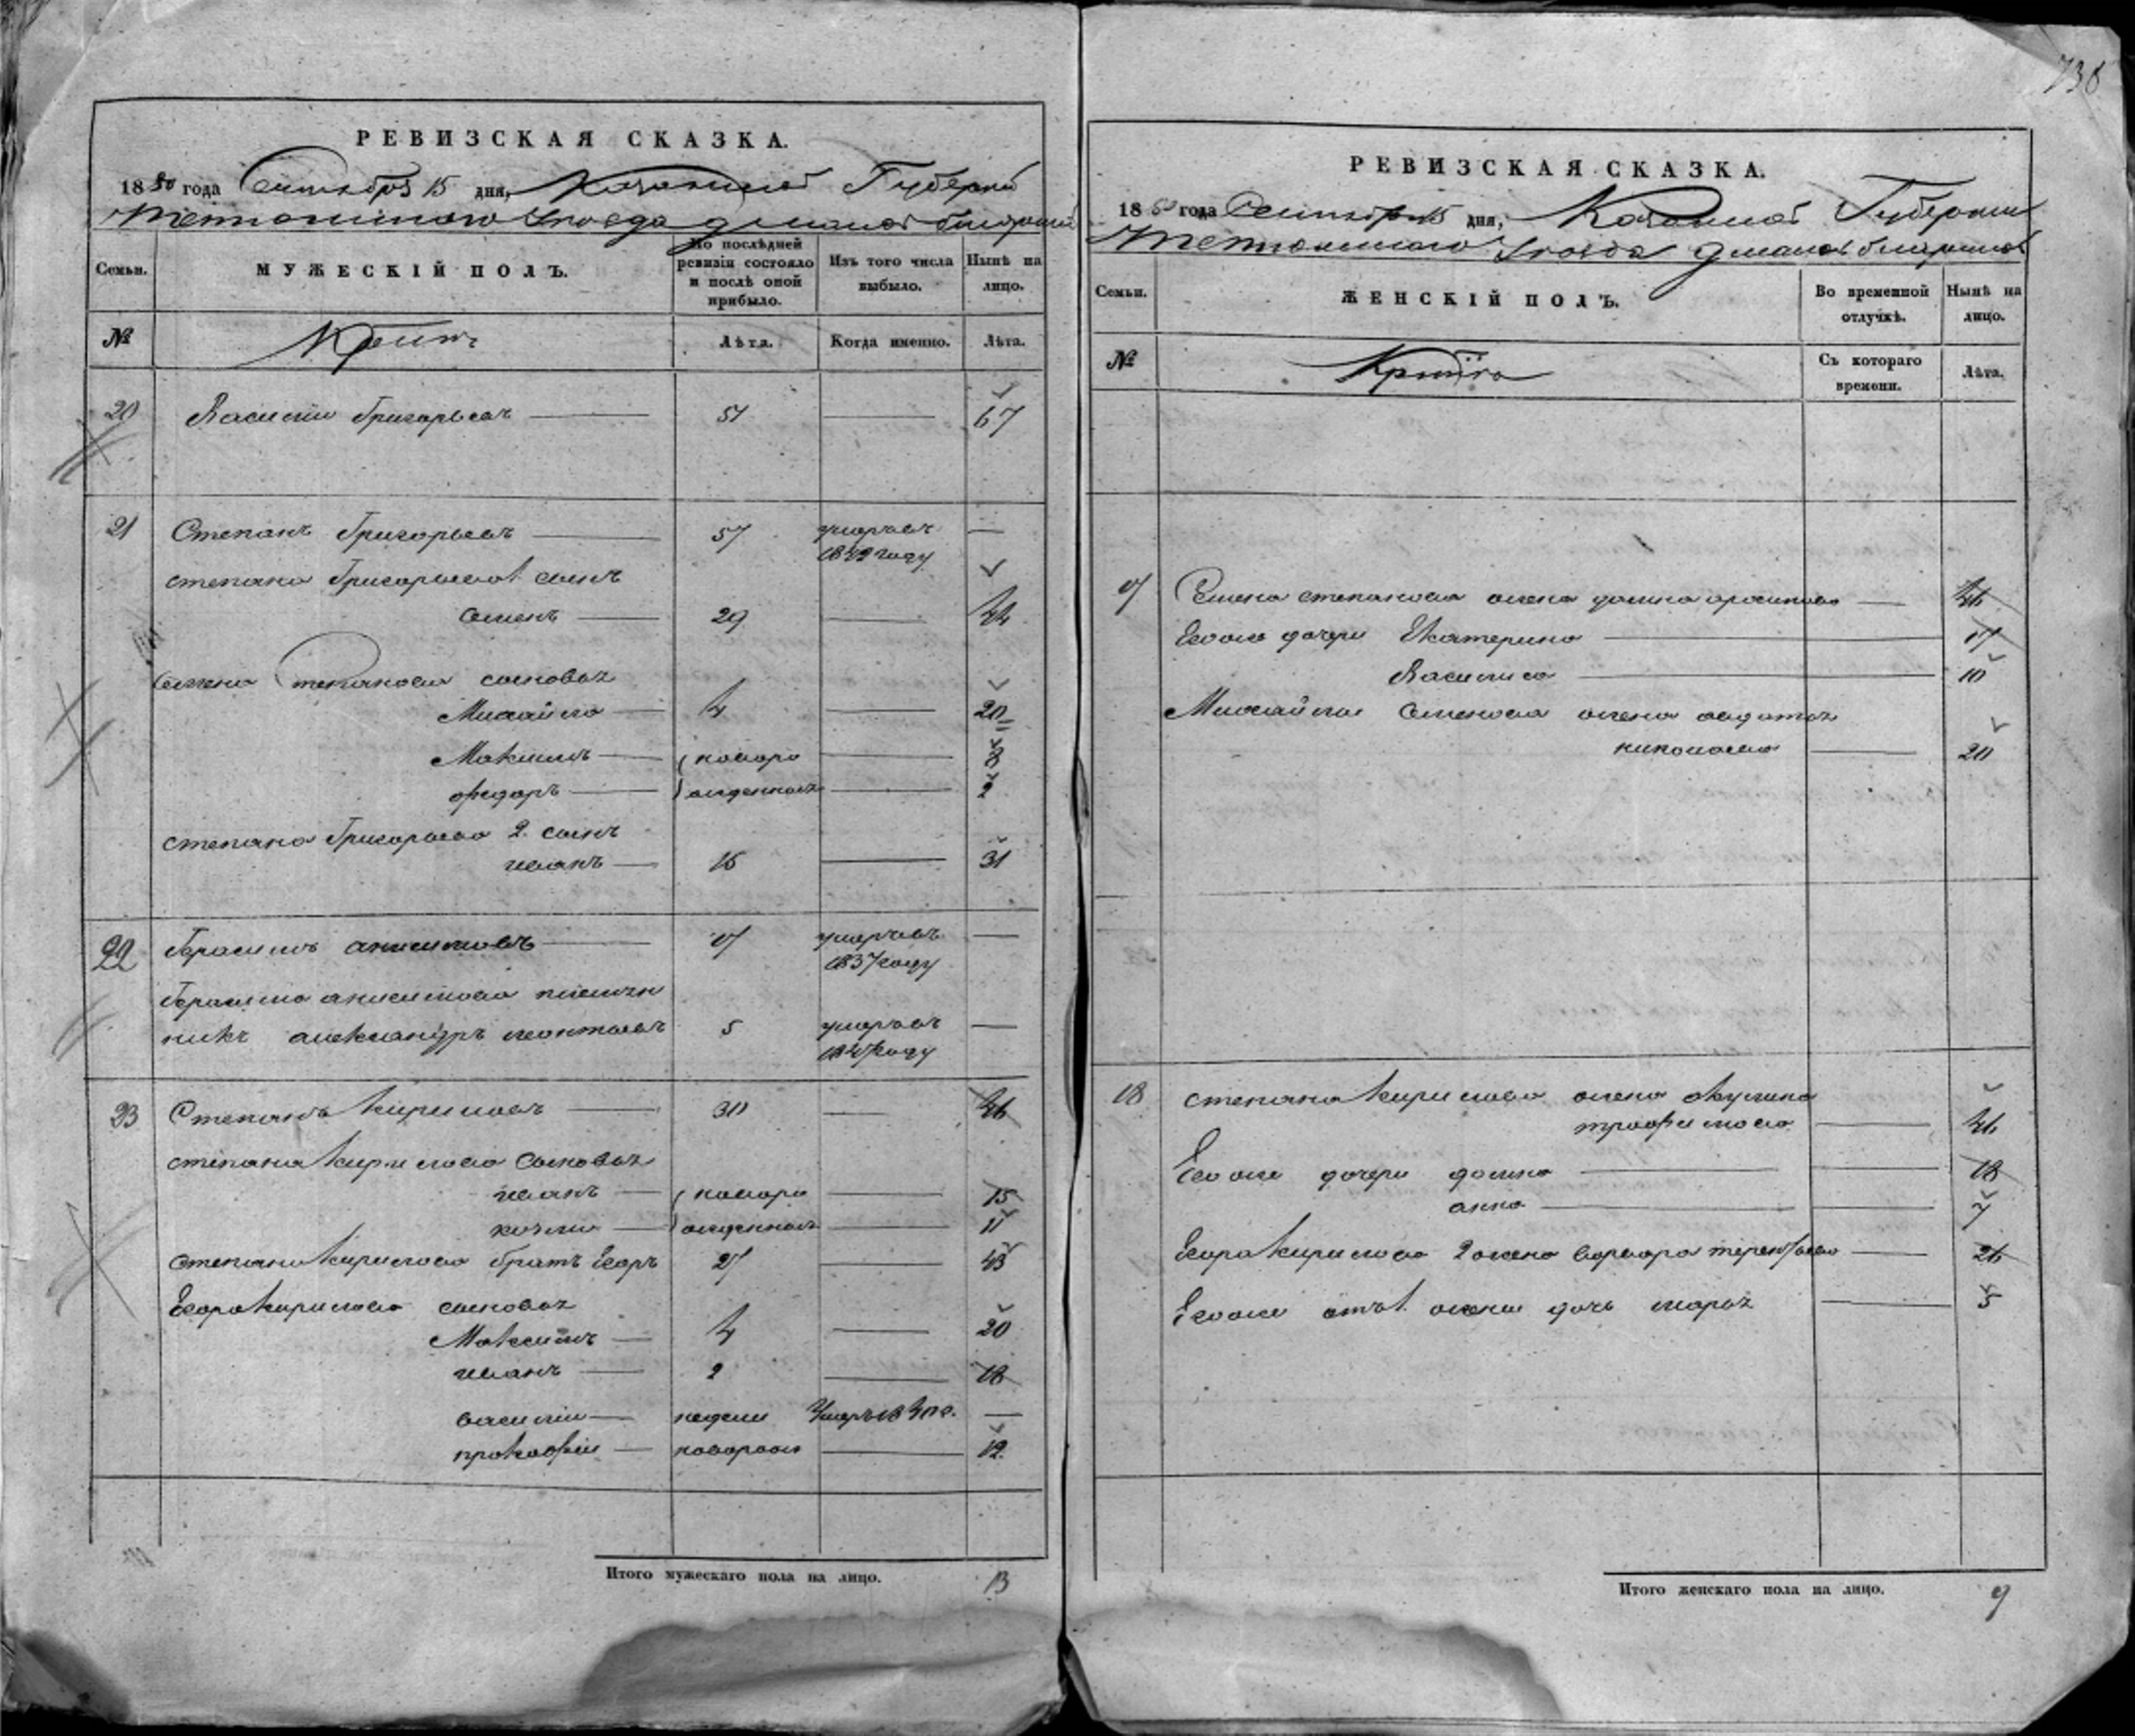 738
РЕВИЗСКАЯ СКАЗКА.
1850 года Сентября 15 дня, Казанской Губернии
Тетюшскаго Уезда
Семьи. МУЖЕСКІЙ ПОЛЪ. По послѣдней ревизіи состояло и послѣ оной прибыло. Изъ того числа выбыло. Нынѣ на лицо.
№ Лѣта. Когда именно. Лѣта.
20 Василий Григорьевъ 51 67
21 Степанъ Григорьевъ 57 умеръ въ
1849 году
степана Григорьева 1. сынъ
Семенъ 29 44
Семена Степанова сыновья
Михайло 4 20
Максимъ новоро 8
Федоръ жденныя 2
степана Григорьева 2. сынъ
иванъ 15 31
22 Герасимъ анисимовъ умеръ въ
1837 году
Герасима анисимова племян
никъ александръ леонтьевъ 5 умеръ въ
году
23 Степанъ Кириловъ 30 46
степана Кирилова сыновья
иванъ новоро 15
козма жденныя 11
степана Кирилова братъ Егоръ 27 43
Егора Кирилова сыновья
Максимъ 4 20
иванъ 2 18
василіи недели умеръ в
прокофіи новорож 12
Итого мужескаго пола на лицо. 13
РЕВИЗСКАЯ СКАЗКА.
1850 года Сентября 15 дня, Казанской Губернии
Тетюшскаго Уезда
Семьи. ЖЕНСКІЙ ПОЛЪ. Во временной отлучкѣ. Нынѣ на лицо.
№ Съ котораго времени. Лѣта.
Семена степанова жена домна 46
Ево же дочери Екатерина 17
Василиса 10
Михайлы Семенова жена авдотья
николаева 20
18 степана Кирилова жена акулина
трофимова 46
Ево же дочери домна 18
анна 7
Егора Кирилова 2 жена варвара терентьева 26
Ево же отъ 1. жены дочь марья 5
Итого женскаго пола на лицо. 9